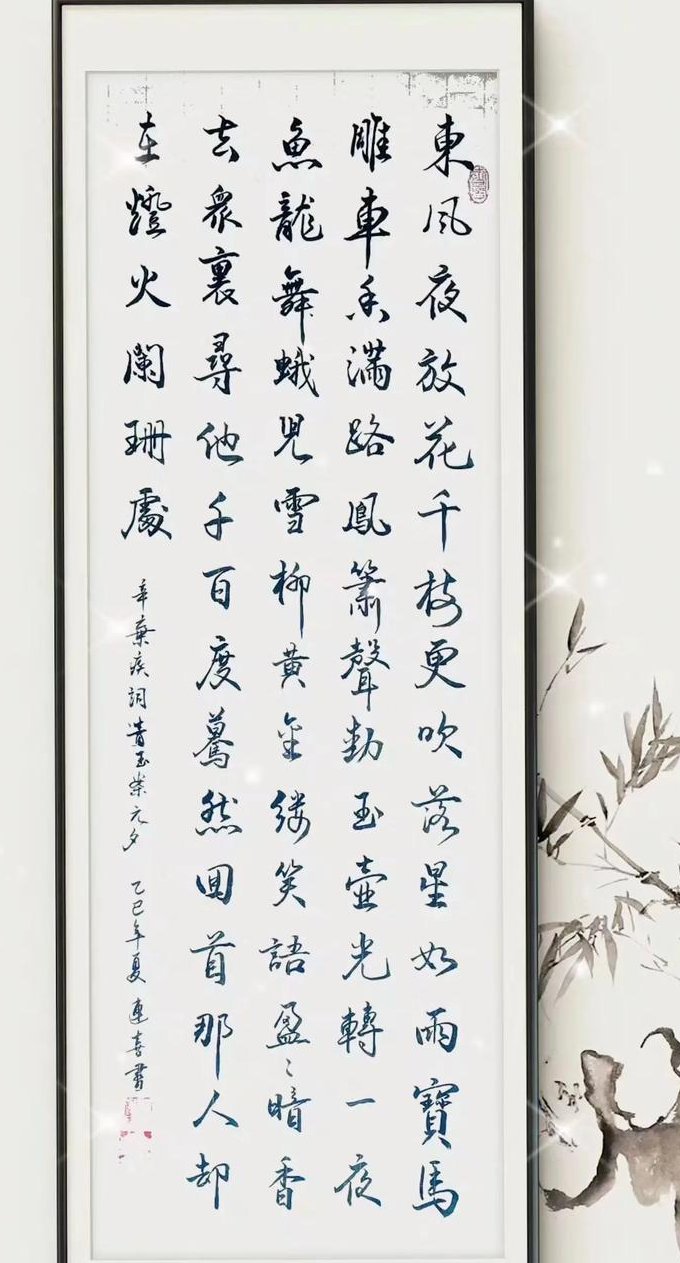 東風夜放花千枝更吹落星如雨寶馬
雕車香滿路鳳簫聲動玉壺光轉一夜
魚龍舞蛾兒雪柳黃金縷笑語盈〻暗香
去衆裏尋他千百度驀然回首那人却
在燈火闌珊處
辛棄疾詞青玉案元夕 乙巳年夏 連喜書